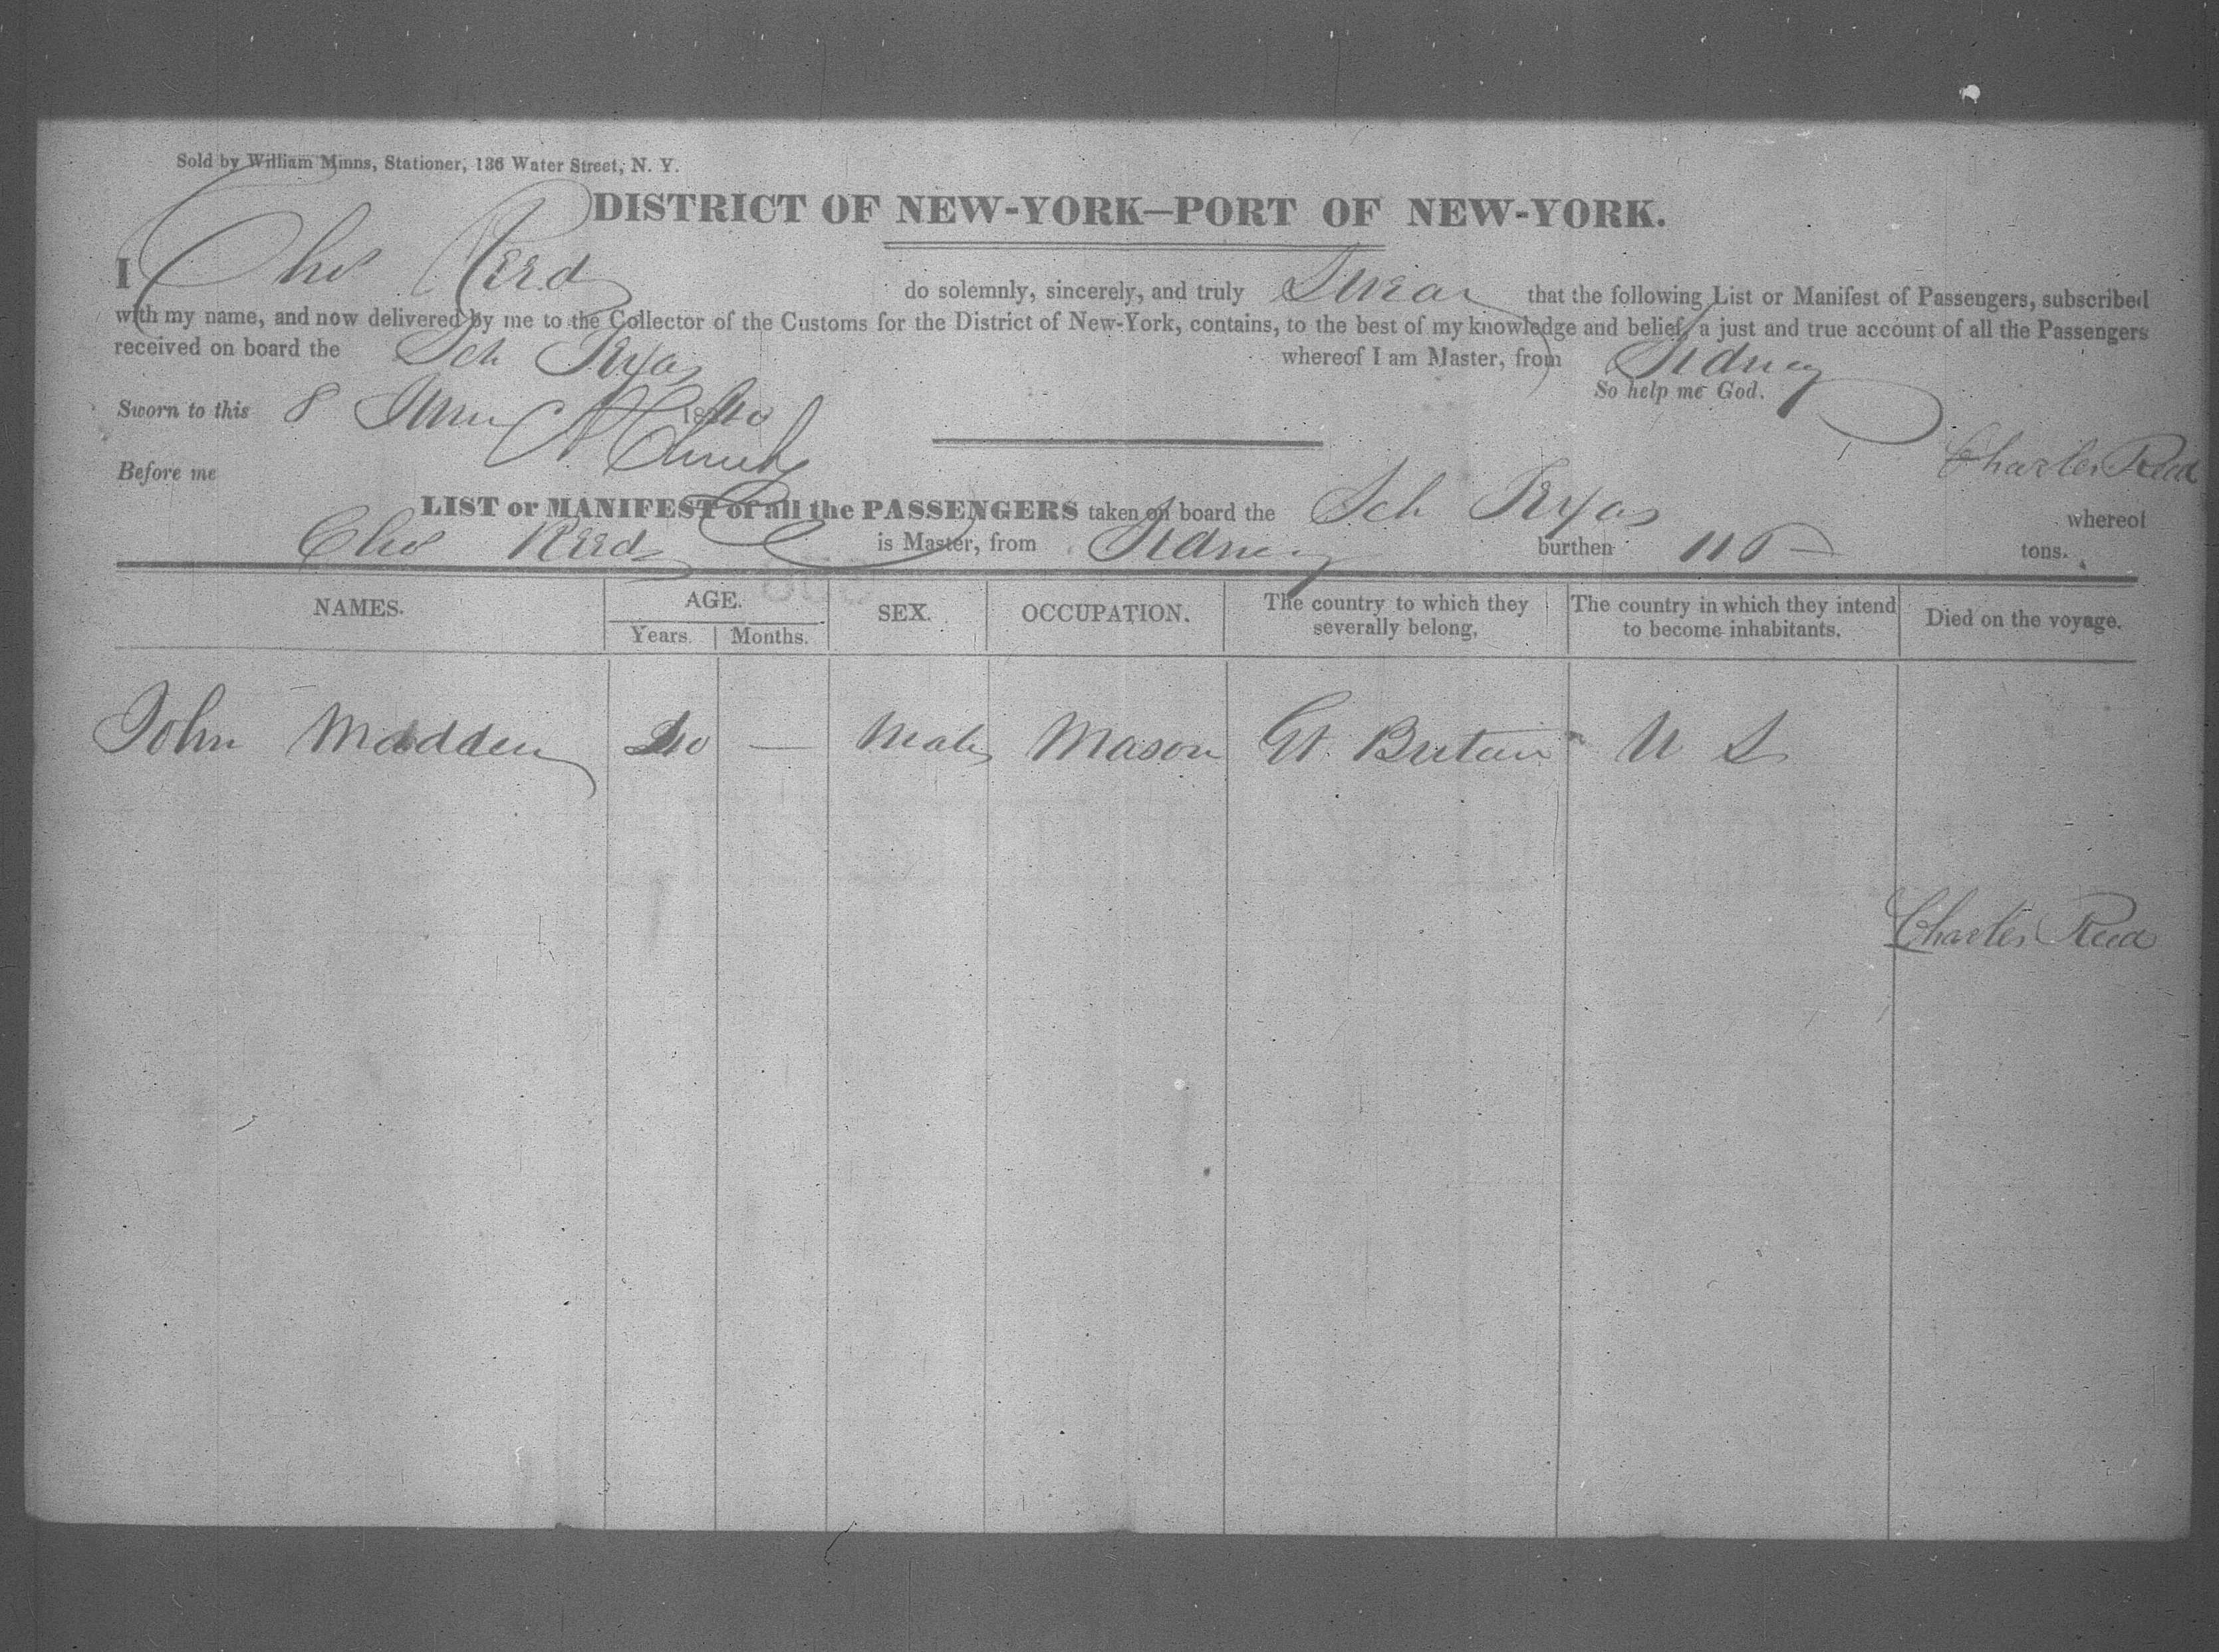 Sold by William Minns, Stationer, 136 Water Street, N. Y.
DISTRICT OF NEW-YORK—PORT OF NEW-YORK.
I Chs Reed do solemnly, sincerely, and truly Swear that the following List or Manifest of Passengers, subscribed
with my name, and now delivered by me to the Collector of the Customs for the District of New-York, contains, to the best of my knowledge and belief, a just and true account of all the Passengers
received on board the Sch whereof I am Master, from Sidney
So help me God.
Sworn to this 8 June 1840
Charles Reed
Before me
LIST or MANIFEST of all the PASSENGERS taken on board the Sch whereof
Chs Reed is Master, from Sidney burthen tons.
NAMES. AGE. SEX. OCCUPATION. The country to which they severally belong. The country in which they intend to become inhabitants. Died on the voyage.
Years. Months.
John Madden — Male Mason Gt. Britain U S
Charles Reed